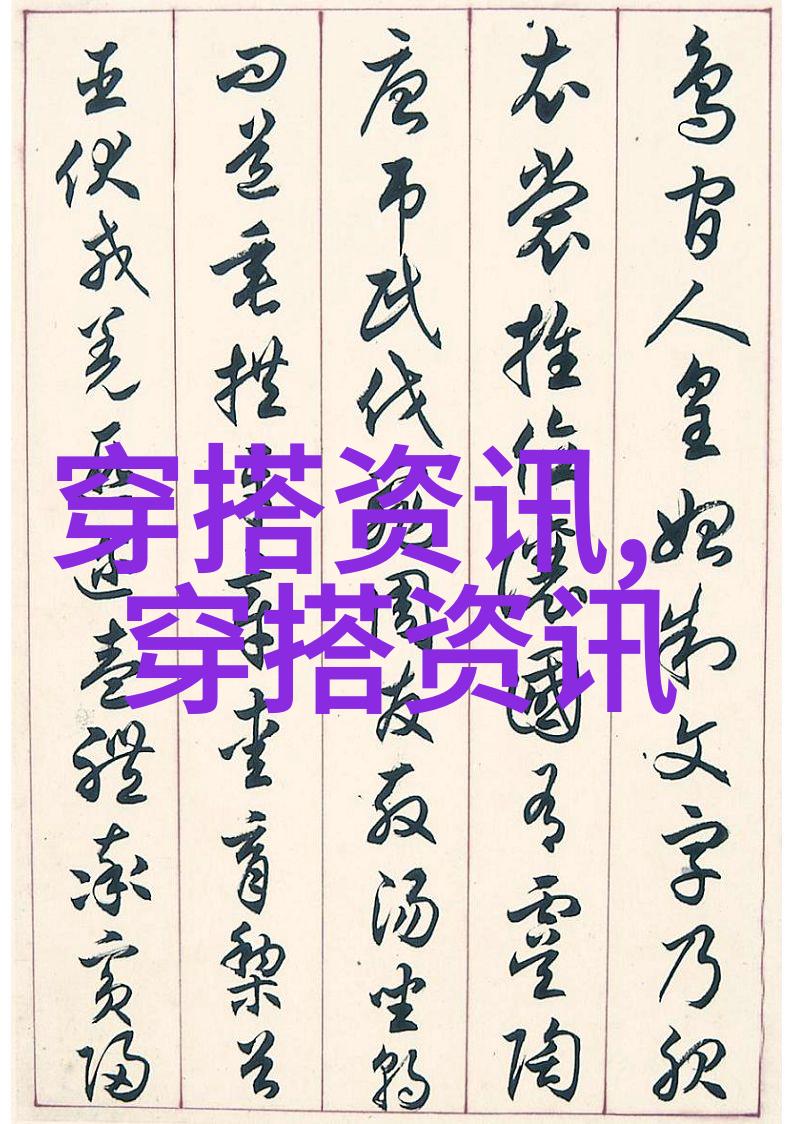 穿搭资讯,
穿搭资讯
鳥官人皇始制文字乃服
衣裳推位讓國有虞陶
唐吊民伐罪周發殷湯坐朝
問道垂拱平章愛育黎首
臣伏戎羌遐邇壹體率賓歸